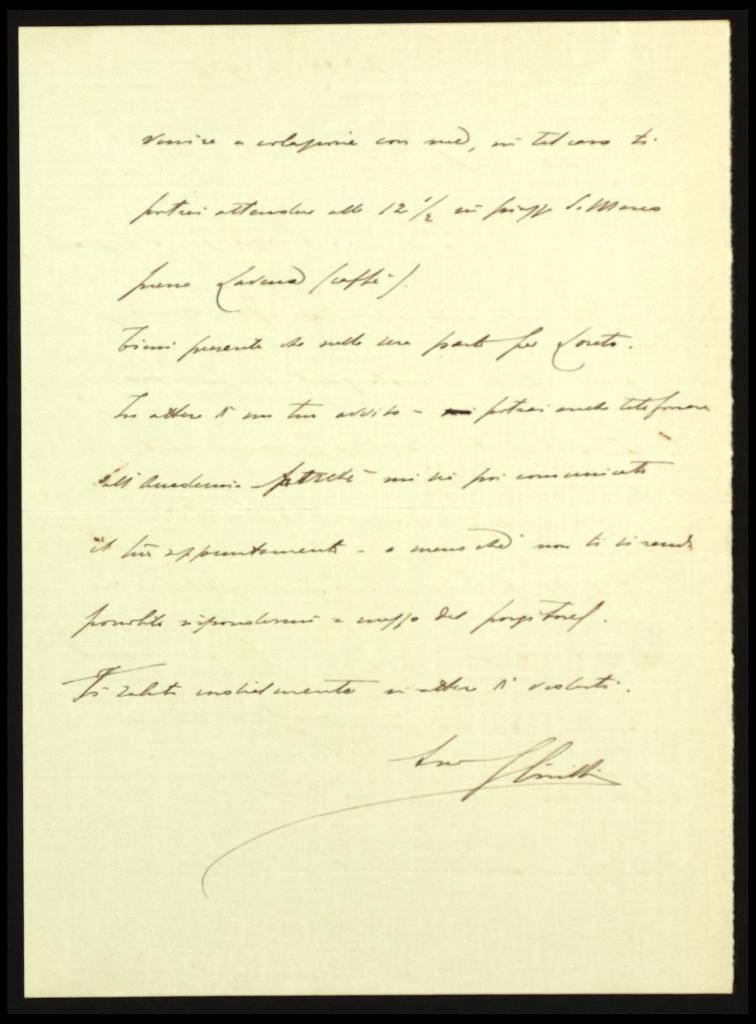 venire a colazione con me, in tal caso ti
potrei attendere alle 12 1/2 in piazza S. Marco
presso Lavena (caffè).
Tieni presente che nella sera parto per Loreto.
In attesa di un tuo avviso – mi potrai anche telefonare
dall'Accademia perchè mi sia poi comunicato
il tuo appuntamento – a meno chè non ti si renda
possibile rispondermi a mezzo del porgitore.
Ti saluto cordialmente in attesa di vederti.
tuo